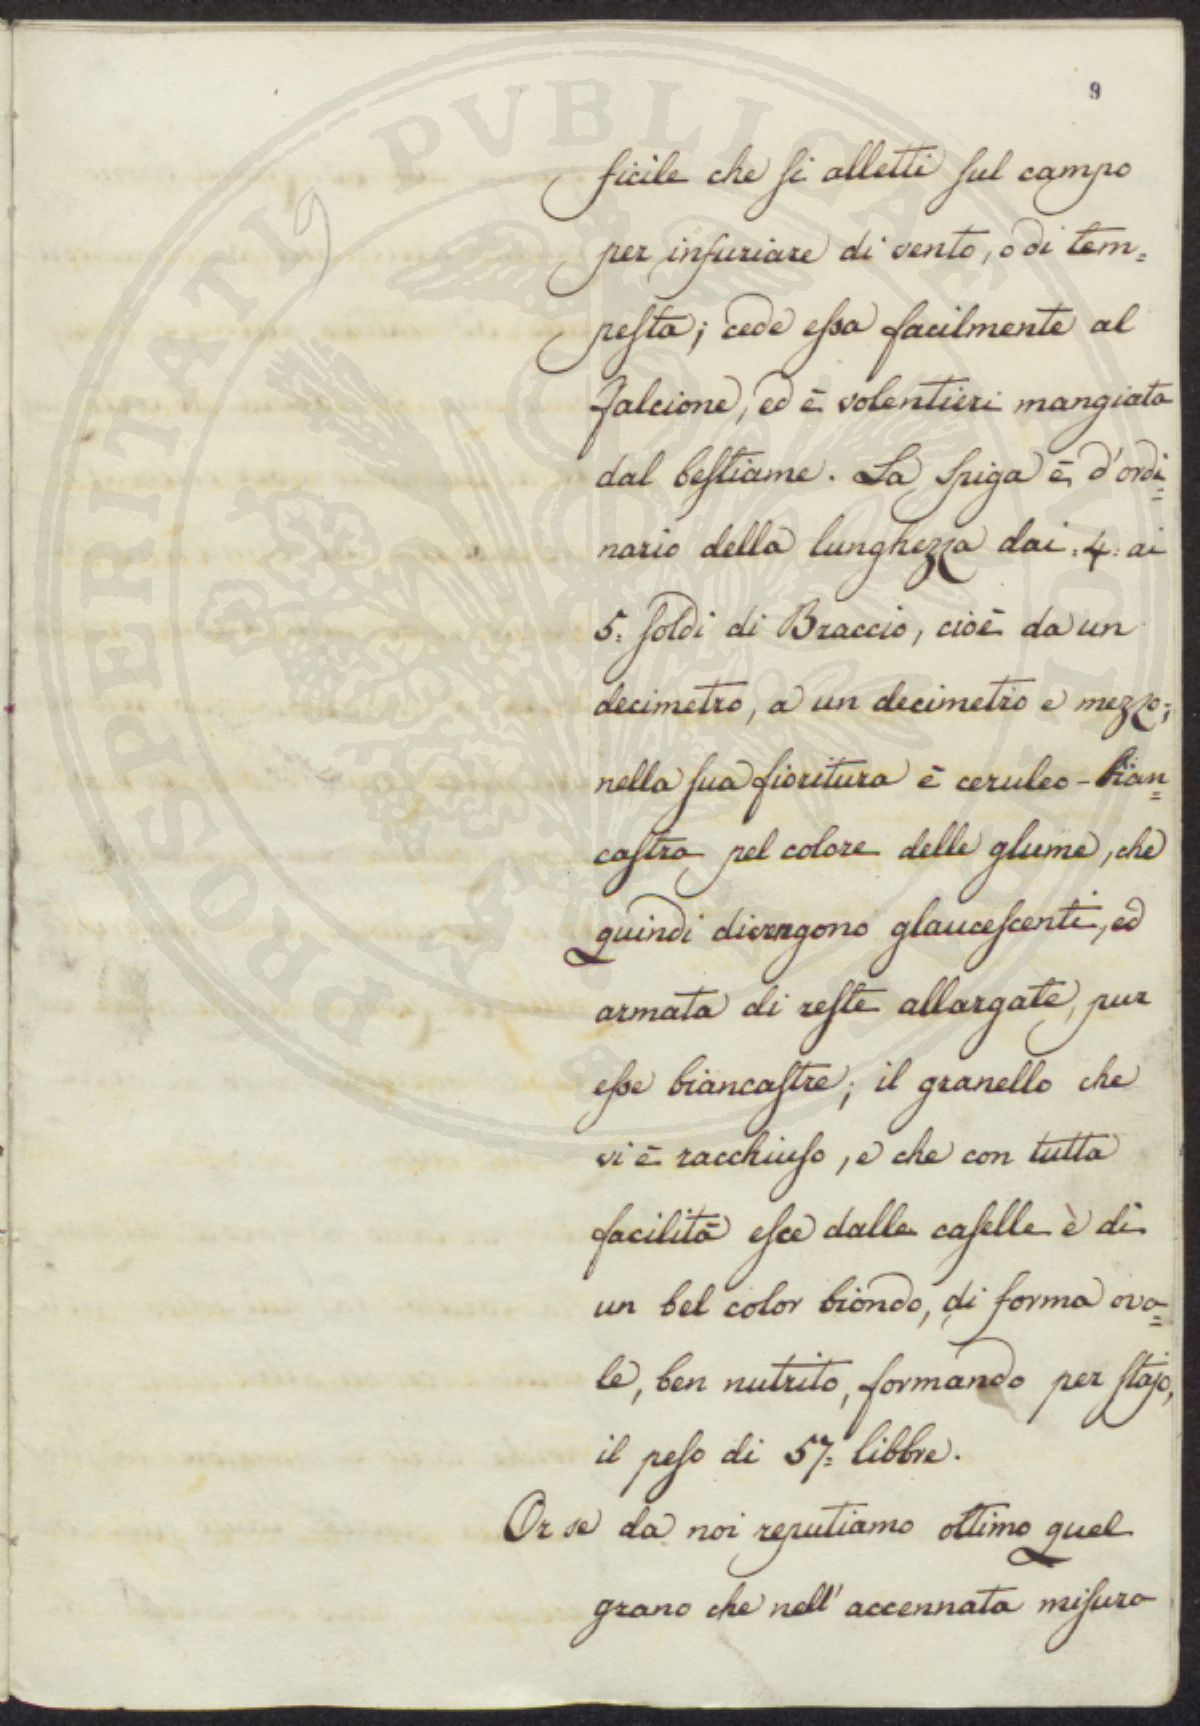 9
ficile che si alletti sul campo
per infuriare di vento, o di tem=
pesta; cede essa facilmente al
falcione, ed è volentieri mangiata
dal bestiame. La Spiga è d'ordi=
nario della lunghezza dai :4: ai
5: soldi di Braccio, cioè da un
decimetro, a un decimetro e mezzo;
nella sua fioritura è ceruleo-bian=
castra pel colore delle glume, che
quindi divengono glaucescenti, ed
armata di reste allargate, pur
esse biancastre; il granello che
vi è racchiuso, e che con tutta
facilità esce dalle caselle è di
un bel color biondo, di forma ova=
le, ben nutrito, formando per stajo,
il peso di 57: libbre.
Or se da noi reputiamo ottimo quel
grano che nell' accennata misura
PROSPERITATI PVBLICAE AVGENDAE